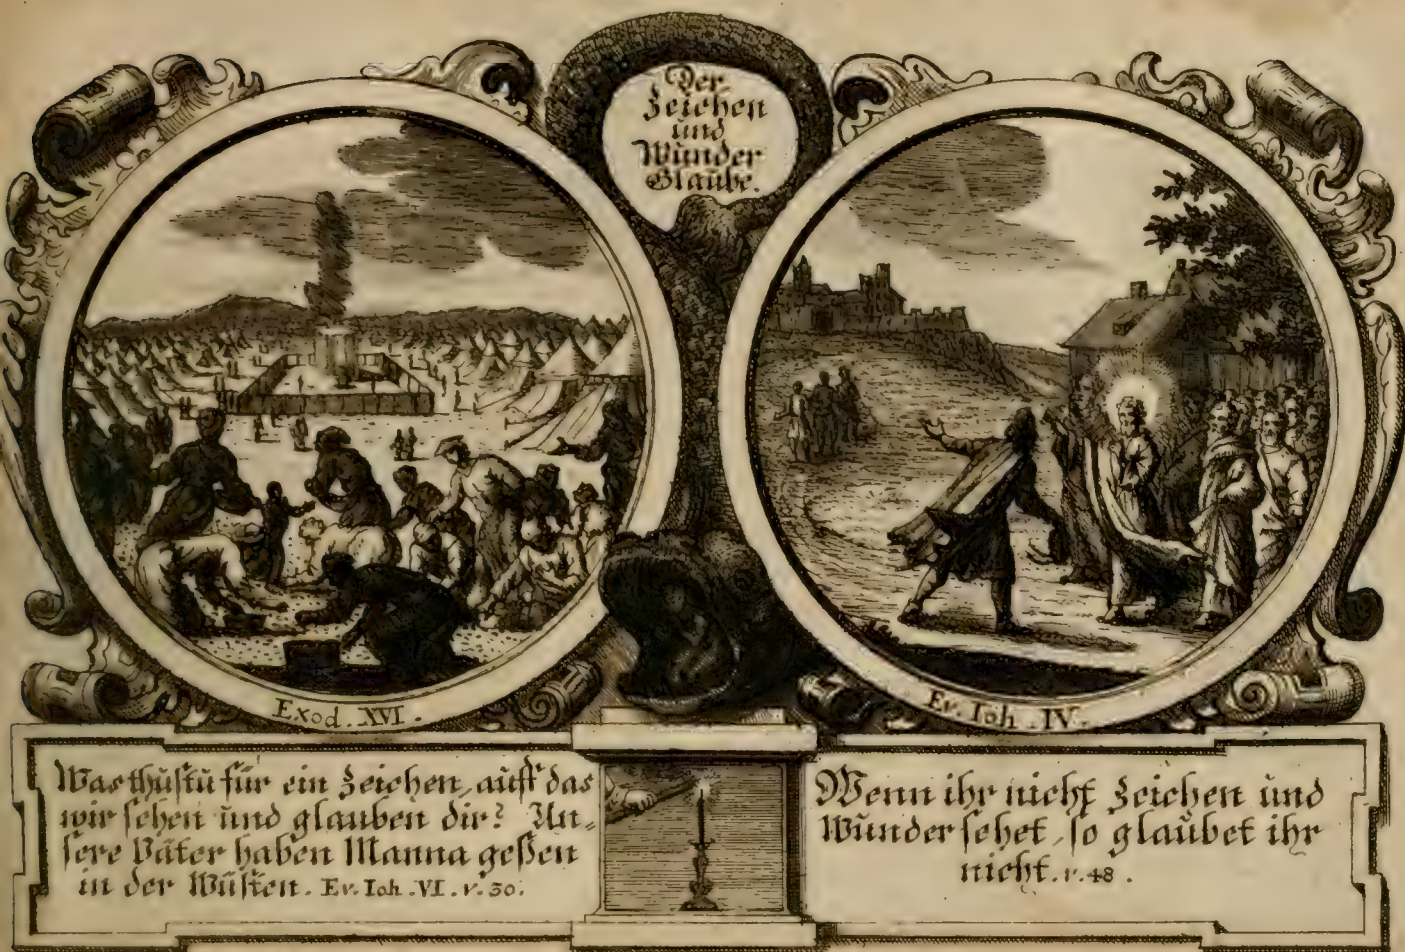 Der
Zeichen
und
Wunder
Glaube.
Exod. XVI.
Ev. Ioh. IV.
Was thustu für ein Zeichen, auff das
wir sehen und glauben dir? Un=
sere Väter haben Manna geßen
in der Wüsten. Ev. Ioh. VI. v. 30.
Wenn ihr nicht Zeichen und
Wunder sehet, so glaubet ihr
nicht. v. 48.